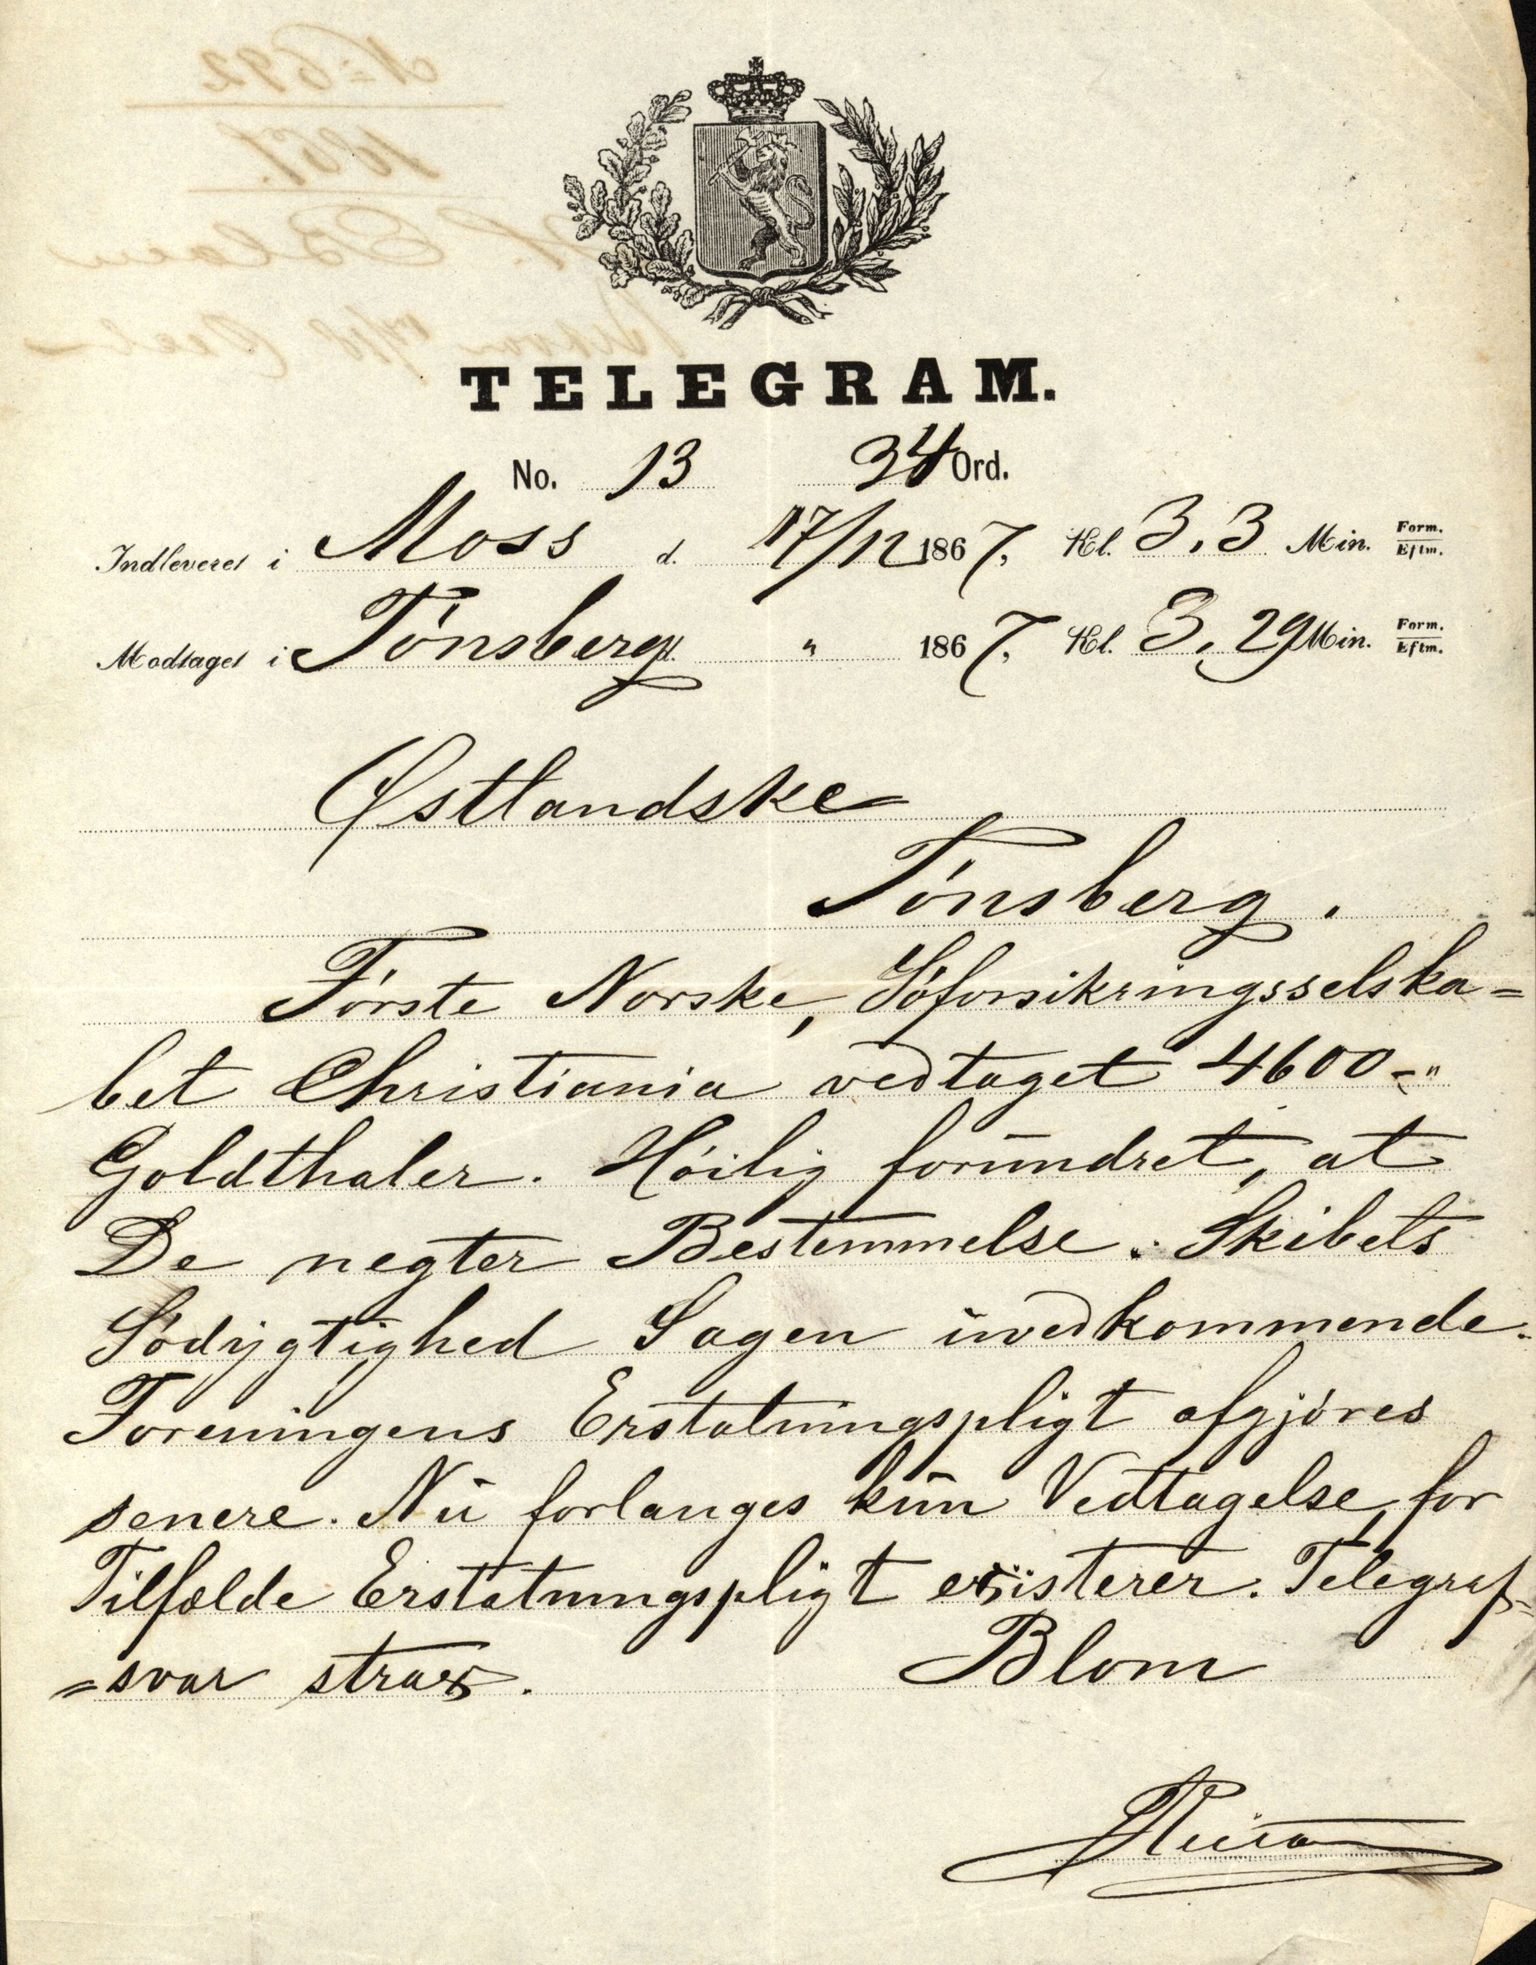 TELEGRAM.
No. 13 34 Ord.
Indleveret i Moss d. 17/12 1867, Kl. 3,3 Min. Form. Eftm.
Modtaget i Tønsberg d. " 1867, Kl. 3,29 Min. Form. Eftm.
Østlandske
Tønsberg.
Første Norske, Søforsikringsselska=
bet Christiania vedtaget 4600-"
Goldthaler. Høilig forundret, at
De negter Bestemmelse. Skibets
Sødygtighed Sagen uvedkommende.
Foreningens Erstatningspligt afgjøres
senere. Nu forlanges kun Vedtagelse, for
Tilfælde Erstatningspligt existerer. Telegraf=
=svar strax. Blom